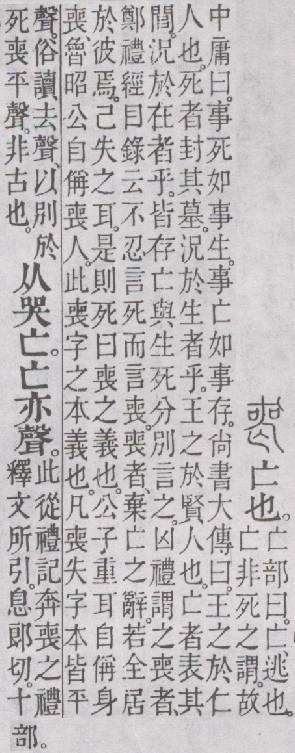 喪亡也。
亡部曰。亡、逃也。
亡非死之謂。故
中庸曰。事死如事生。事亡如事存。尚書大傳曰。王之於仁
人也。死者封其墓。況於生者乎。王之於賢人也。亡者表其
閭。況於在者乎。皆存亡與生死分別言之。凶禮謂之喪者、
鄭禮經目錄云不忍言死而言喪。喪者、棄亡之辭。若全居
於彼焉。己失之耳。是則死曰喪之義也。公子重耳自偁身
喪。魯昭公自偁喪人。此喪字之本義也。凡喪失字本皆平
聲。俗讀去聲、以別於
死喪平聲。非古也。
从哭亡。亡亦聲。
此從禮記奔喪之禮
釋文所引。息郎切。十部。